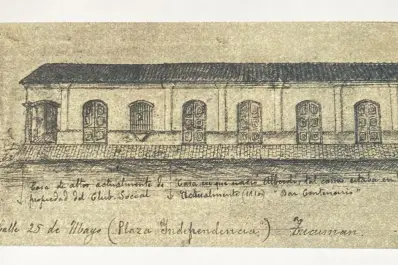 Casa de altos actualmente de Casa en que nació Alberdi, tal como estaba en
propiedad del Club Social Actualmente (1910) "Bar Centenario"
Calle 25 de Mayo (Plaza Independencia) Tucuman.